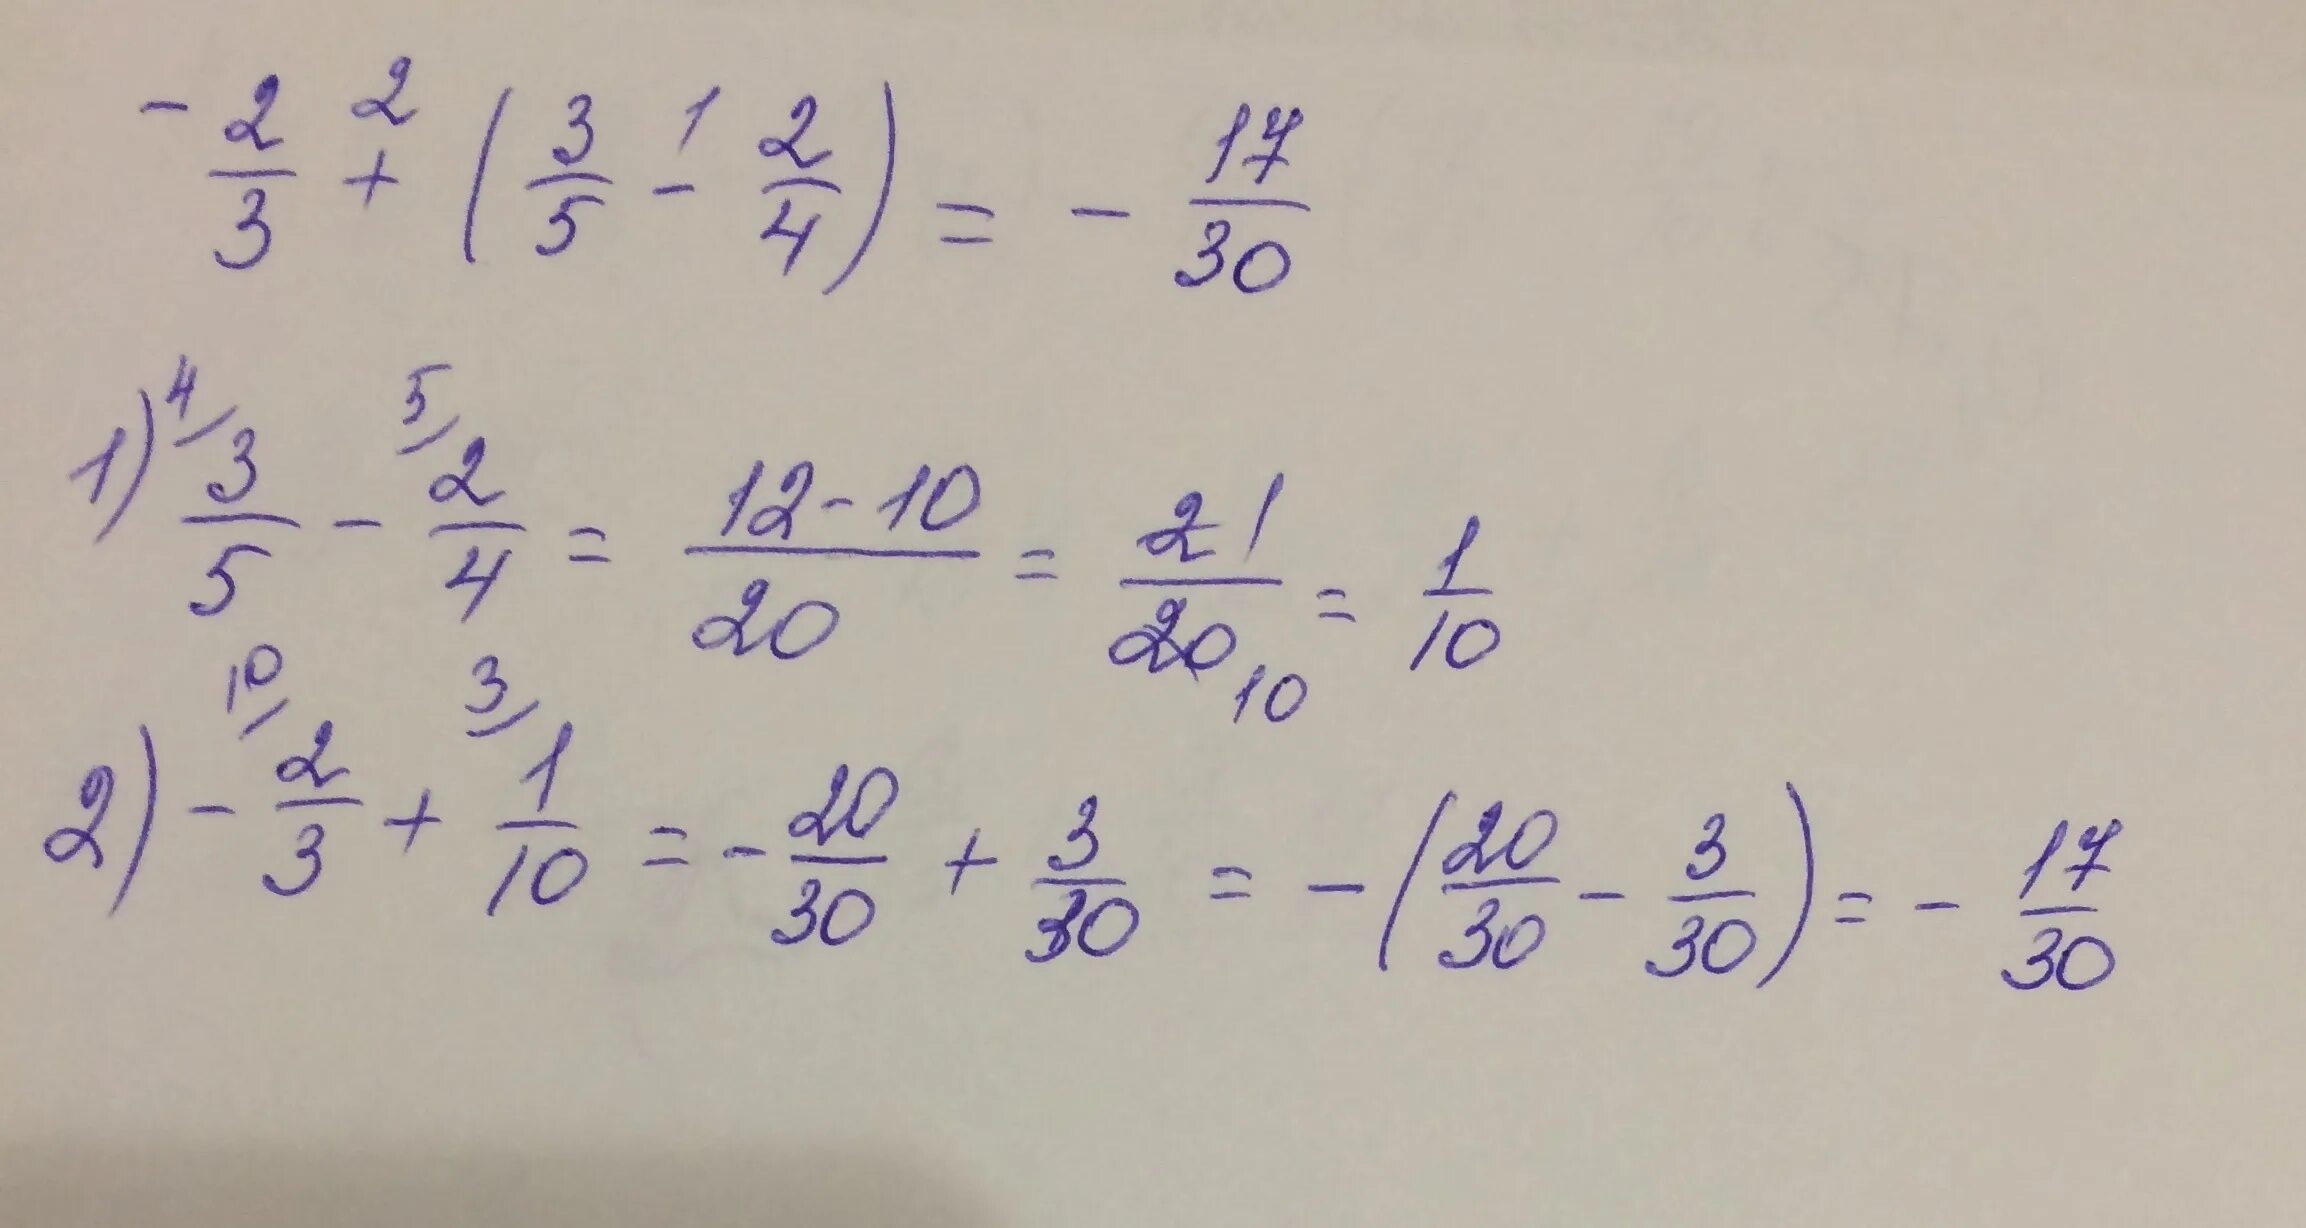 - 2/3 + (3/5 - 2/4) = - 17/30
1) 3/5 - 2/4 = (12-10)/20 = 2/20 = 1/10
2) - 2/3 + 1/10 = - 20/30 + 3/30 = - (20/30 - 3/30) = - 17/30